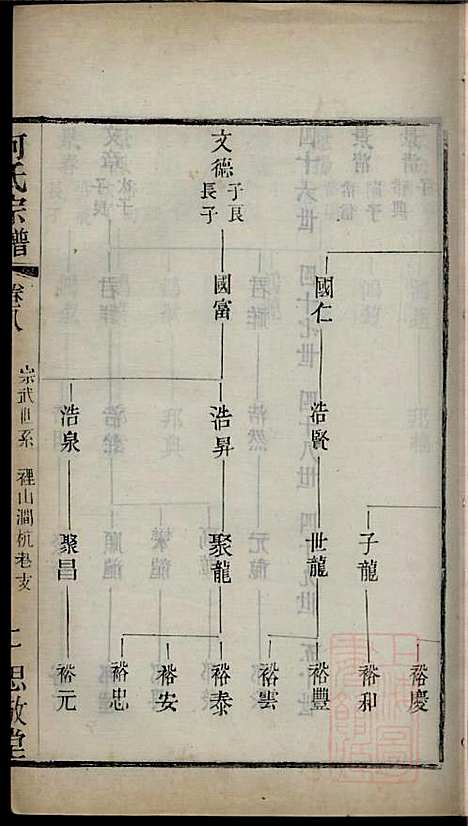 裕慶
子龍
裕和
國仁
浩賢
世龍
裕豐
裕雲
文德
子良
長子
國富
浩昇
聚龍
裕泰
裕安
裕忠
浩泉
聚昌
裕元
何氏宗譜
卷八
崇武世系
裡山澗杭老支
二
思敬堂